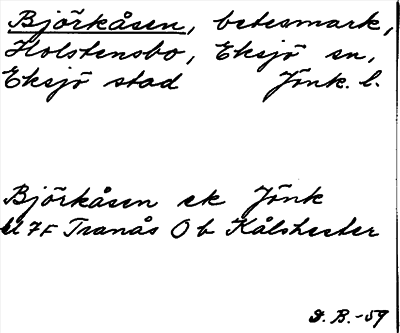 Björkåsen, betesmark,
Holstensbo, Eksjö sn,
Eksjö stad Jönk. l.
Björkåsen ek Jönk
bl 7F Tranås O b Kålshester
D. B. -59